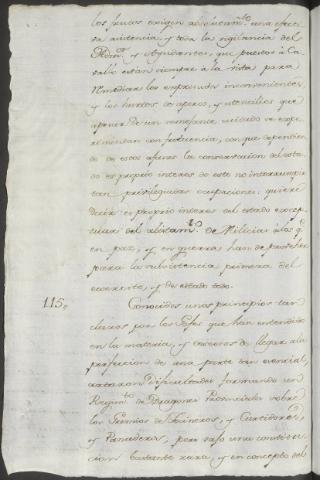 los frutos exigen absolutam.te una efecti-
va asistencia, y toda la vigilancia del
Adm.or y Ayudantes, que puestos à Ca-
vallo están siempre à la vista para
remediar los expresados inconvenientes,
y los hurtos de aperos, y utensilios que
apesar de un semejante cuidado se expe-
rimentan con frecuencia, con que dependien-
do de estos afanes la conservacion del esta-
do es proprio interes de este no interrumpir
tan privilegiadas ocupaciones: quiere
decir: es proprio interes del estado excep-
tuar del alistam.to de Milicias à los q.e
en paz, y en guerra han de proveher
para la subsistencia primera del
exercito, y de estado todo.
115, Conocidos unos principios tan
claros por los Gefes que han entendido
en la materia, y deseosos de llegar à la
perfeccion de una parte tan esencial,
cortaron dificultades formando un
Regim.to de Dragones Provinciales sobre
los Gremios de Tocineros, y Curtidores,
y Panaderos, pero bajo una constitu-
cion bastante rara, y en concepto del